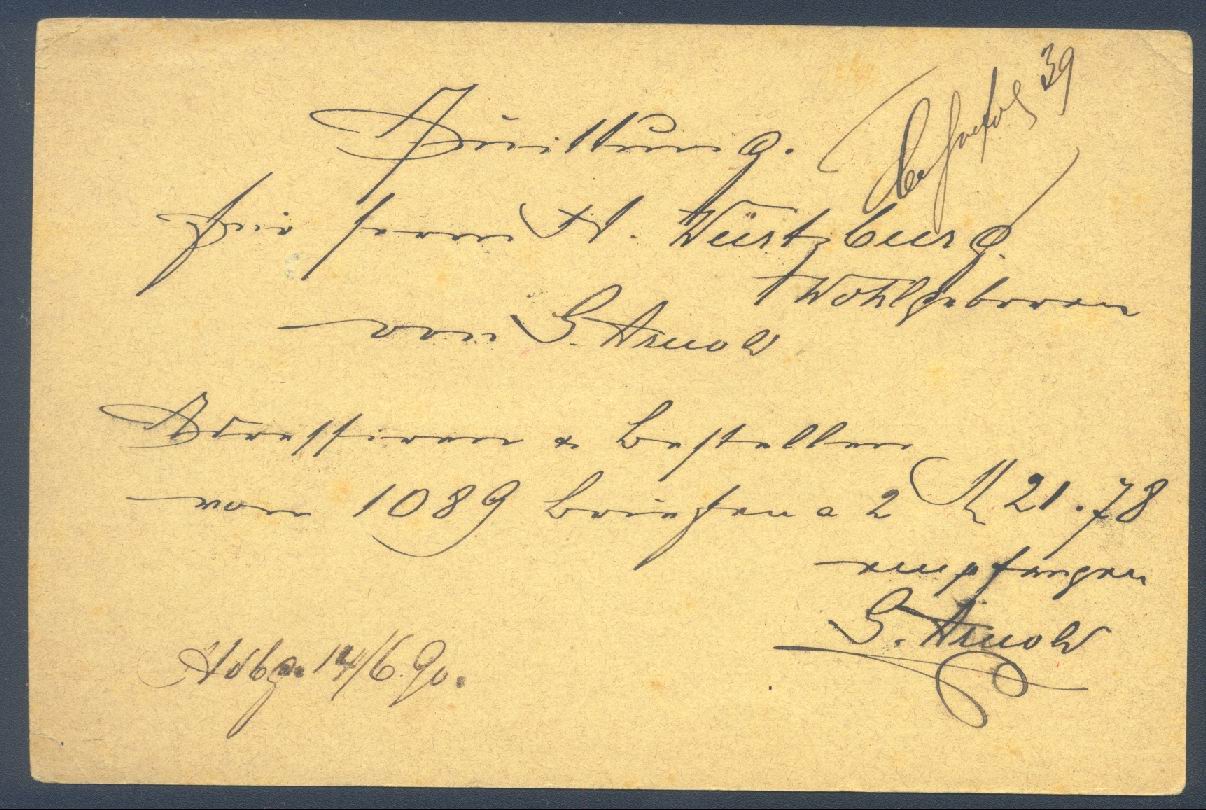 39
Quittung.
für Herrn A. Würtzburg.
Wohlgeboren
von G. Arnold
Adressiren & bestellen
von 1089 Briefen a 2 M 21.78
empfangen
G. Arnold
14/6.90.